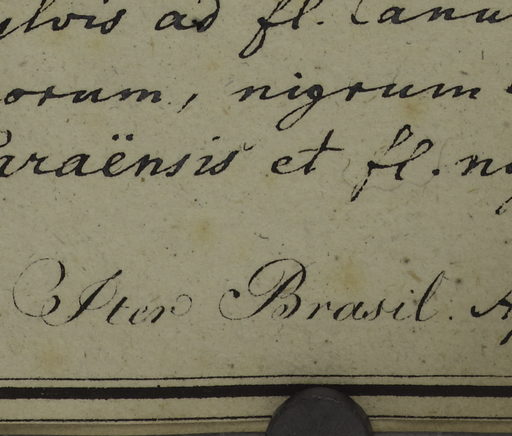 ylvis ad fl. Canu
orum, nigrum
Paraënsis et fl. nig
Iter Brasil. Ap